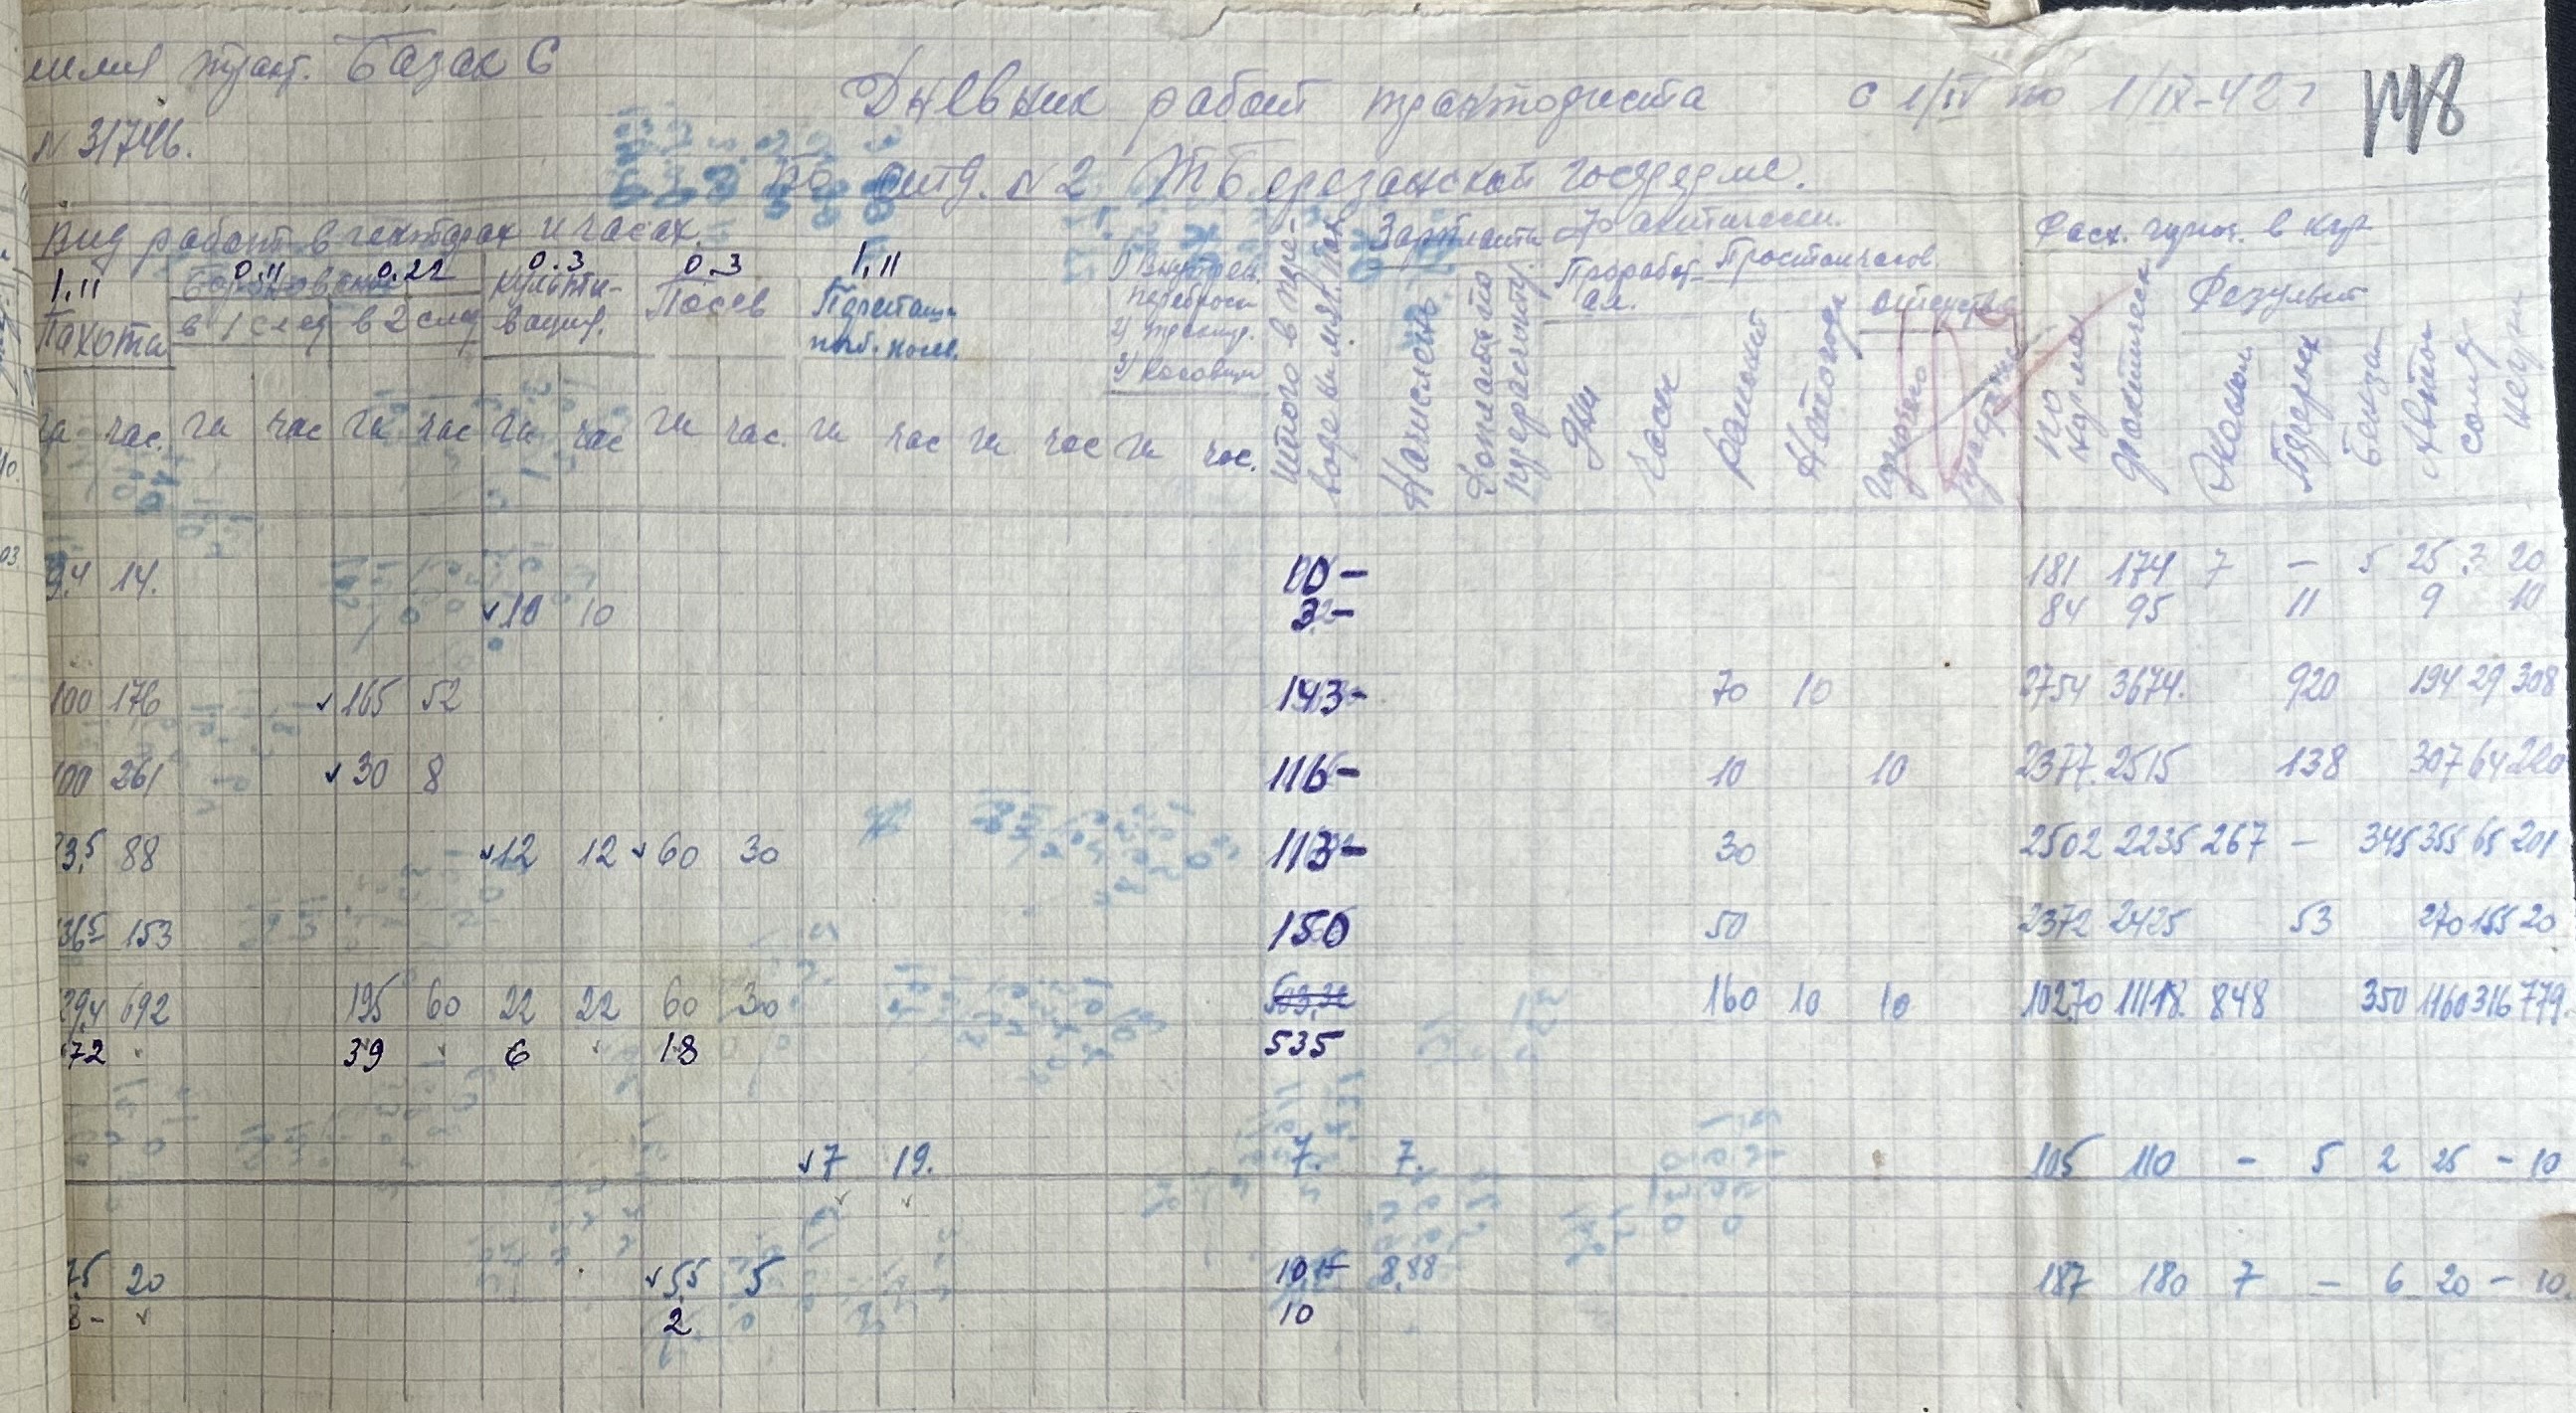 тракт. Базак С
Дневник работ тракториста с 1/IV по 1/IX-42 г
148
N 31746.
по отд. N 2 Т Березанской госферме.
Вид работ в гектарах и часах.
Зарплата
Фактически.
Расх. горюч. в кгр
1,11 0.11 0.22 0.3 0.3 1,11
Пахота
Боронование
в 1 след в 2 след
Культи-
вация.
Посев
1) Внутрен.
переброски
Проработ. Простои часов.
отсутствие
Результ
Итого в пере-
воде на мяг. пах.
Начислено
Доплата по
Дни
Часы
Поломки
Непогода
Горючего
По
норме
фактическ
Эконом.
Перерасх
Бензин
Автол
солид
нигрол
га час. га час га час га час га час. га час га час га час.
9.4 14. 10 – 181 174 7 – 5 25 3 20
10 10 3 – 84 95 11 9 10
100 176 165 52 143 – 70 10 2754 3674. 920 194 29 308
100 261 30 8 116 – 10 10 2377. 2515 138 307 64 220
3,5 88 12 12 60 30 113 – 30 2502 2235 267 – 345 355 65 201
36,5 153 150 50 2372 2425 53 270 155 20
29,4 692 195 60 22 22 60 30 160 10 10 10270 11118. 848 350 1160 316 779.
72 39 – 6 18 535
7 19. 7. 7. 105 110 – 5 2 25 – 10
7,5 20 5,5 5 8,88 187 180 7 – 6 20 – 10.
8 – 2 10